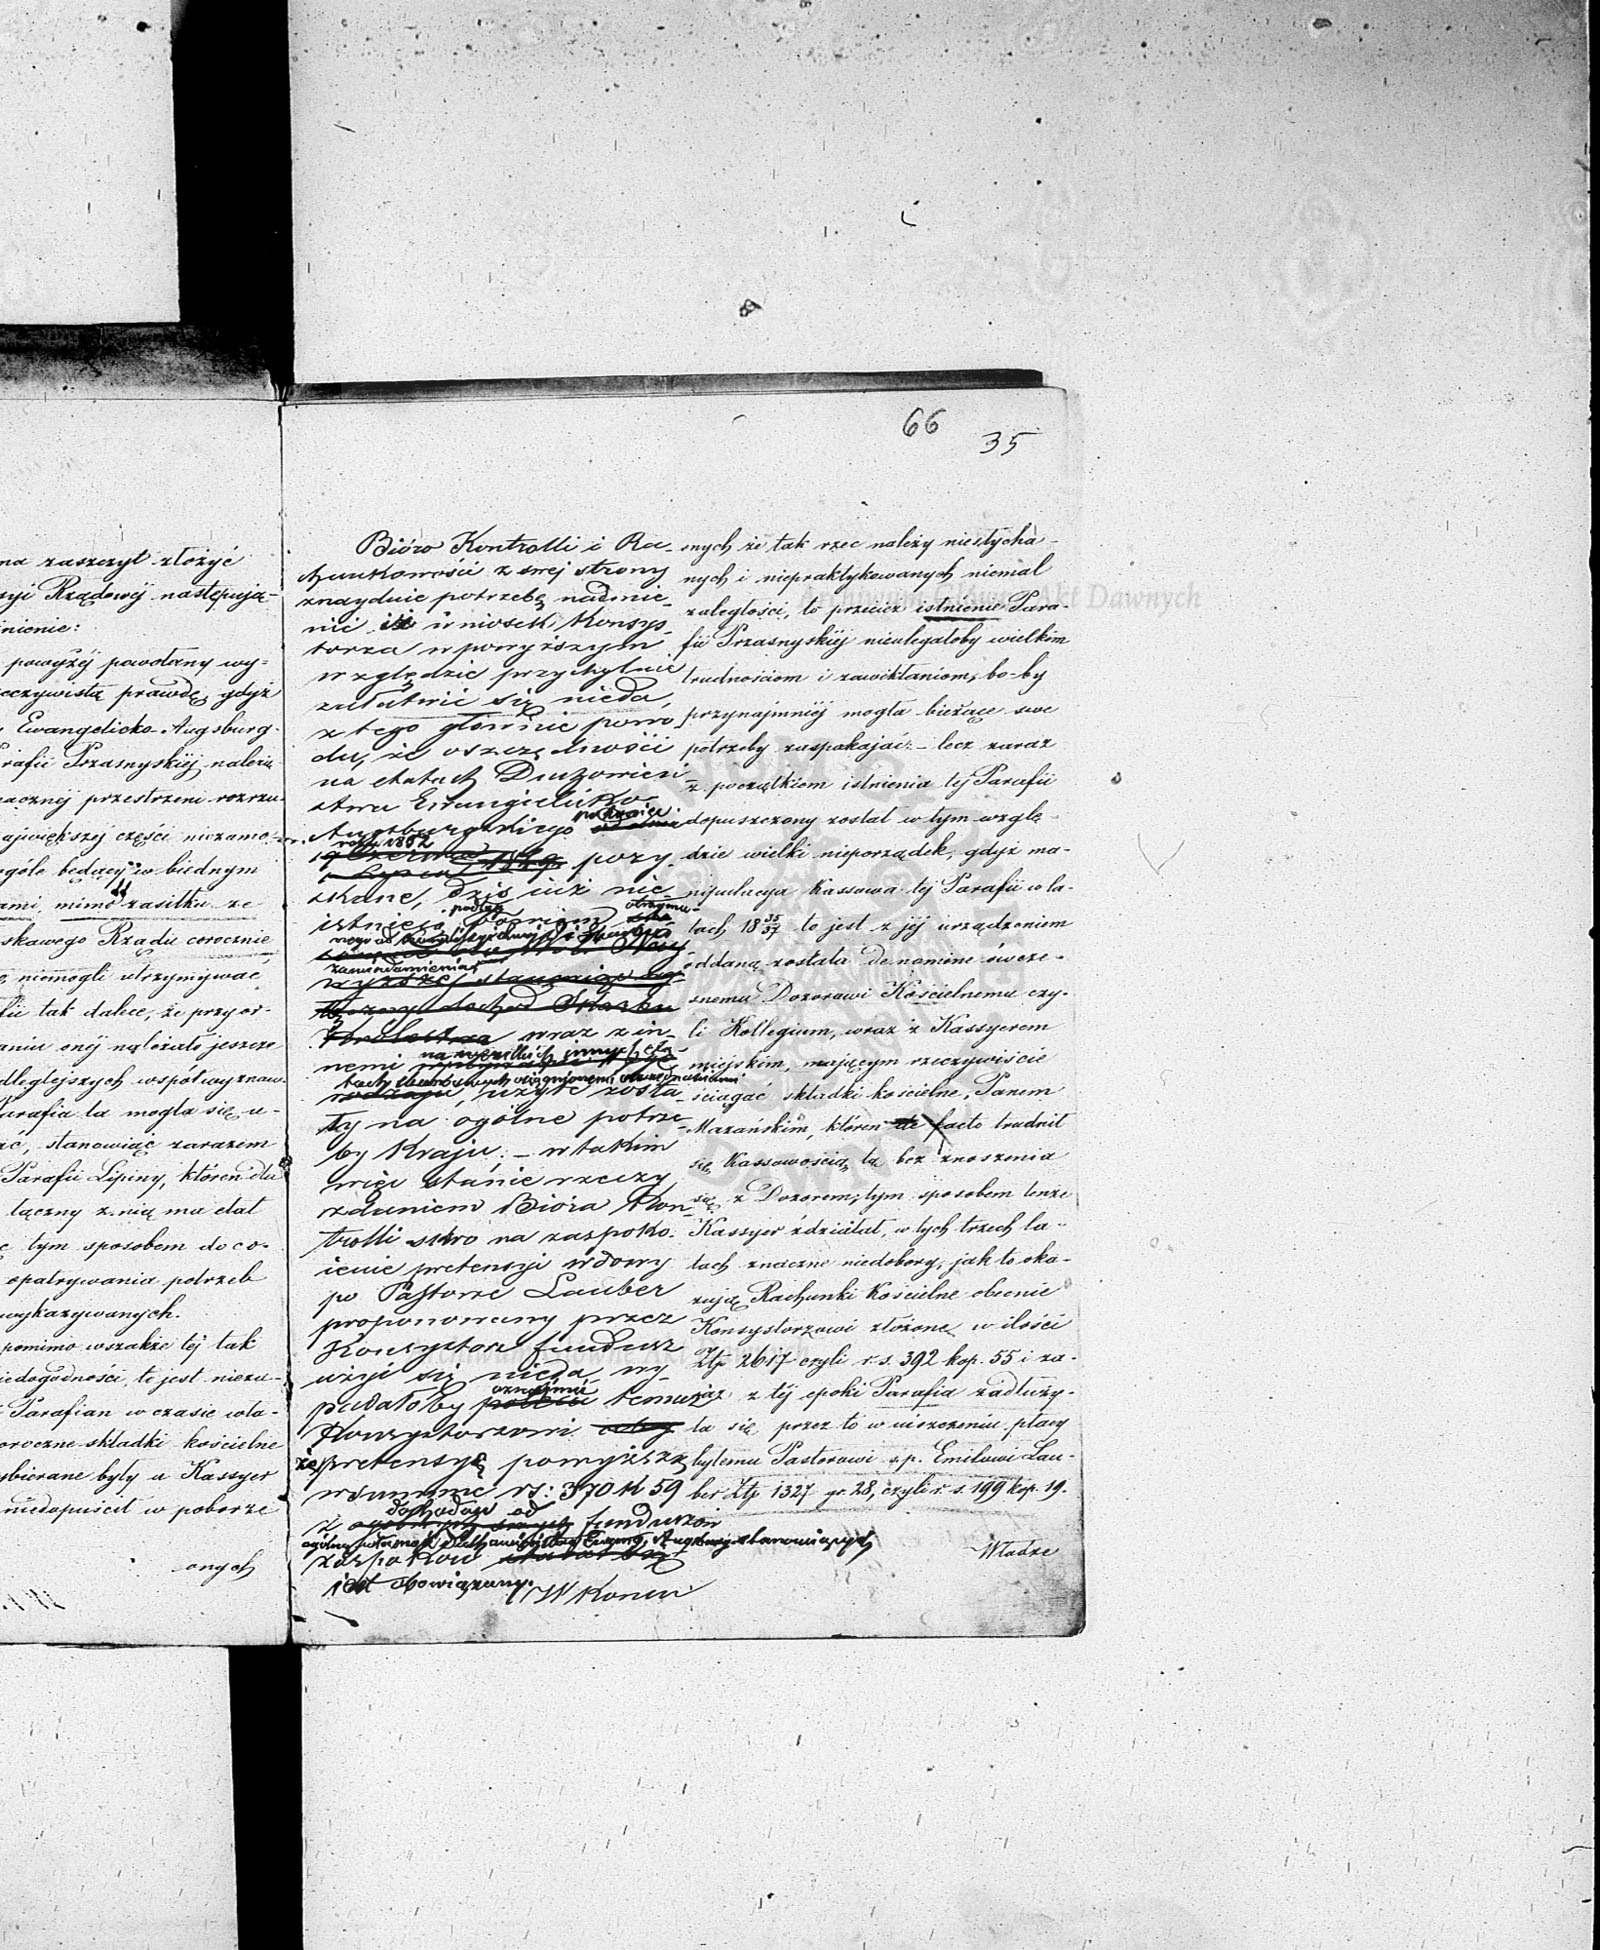 66
35
na zaszczyt złożyć
syi Rządowéj następują-
nienie:
powyżéj powołany wy-
eczywistą prawdę, gdyż
Ewangelicko-Augsburg-
Parafii Przasnyskiéj należą
acznéj przestrzeni rozrzu-
największéj części niezamo-
góle będący w biednym
ami, mimo zasiłku ze
skawego Rządu corocznie
niemogli utrzymywać
fii tak dalece, że przy or-
aniu onéj należało jeszcze
dleglejszych współwyznaw-
Parafia ta mogła się u-
ać, stanowiąc zarazem
Parafii Lipiny, któren dla
łączny z nią ma etat
c tym sposobem do co-
opatrywania potrzeb
wykazywanych.
pomimo wszakże téj tak
iedogodności, to jest niezu-
Parafian w czasie wła-
oroczne składki kościelne
zbierane były a Kassyer
niedopuścił w poborze
onych
Bióro Kontrolli i Ra-
chunkowości z swej strony
znayduie potrzebę nadmie-
nić iż wniosek Konsys-
torza w powyższym
względzie przychylnie
załatwić się nieda,
z tego głównie powo-
du, że oszczędności
na etatach Duchowień-
stwa Ewangielicko
Augsburgskiego po koniec
roku 1852 pozy-
skane, dziś iuż nie
istnieią, podług otrzyma-
nego od
zawiadomienia
wraz z in-
nemi na wszystkich innych eta-
tach osiągnionemi oszczędnościami
, użyte zosta-
ły na ogólne potrze-
by Kraju; – w takim
więc stanie rzeczy
zdaniem Bióra Kon-
trolli skoro na zaspoko-
ienie pretensyi wdowy
po Pastorze Lauber
proponowany przez
Konsystorz fundusz
użyć się nieda, wy-
padałoby oznaymić temuż
Konsystorzowi
że pretensyę powyższą
w summie rs: 370 k 59
z dochodów od funduszów
ogólną własność Duchowieństwa Ewang. Augsburg. stanowiących
zaspokoić
iest obowiązany.
W Konar
onych że tak rzec należy niesłycha-
nych i niepraktykowanych niemal
zaległości, to przecież istnienie Para-
fii Przasnyskiéj nieulegałoby wielkim
trudnościom i zawikłaniom, bo-by
przynajmniéj mogła bieżące swe
potrzeby zaspakajać: – lecz zaraz
z początkiem istnienia téj Parafii
dopuszczony został w tym wzglę-
dzie wielki nieporządek, gdyż ma-
nipulacya Kassowa téj Parafii w la-
tach 18 35/37 to jest z jéj urządzeniem
oddaną została de nomine ówcze-
snemu Dozorowi Kościelnemu czy-
li Kollegium, wraz z Kassyerem
miejskim, mającym rzeczywiście
ściągać składki kościelne, Panem
Mazańskim, któren de facto trudnił
się Kassowością tą bez znoszenia
się z Dozorem; tym sposobem tenże
Kassyer zdziałał, w tych trzech la-
tach znaczne niedobory, jak to oka-
zują Rachunki Kościelne obecnie
Konsystorzowi złożone, w ilości
Złp 2617 czyli r.s. 392 kop. 55 i za-
raz z téj epoki Parafia zadłuży-
ła się przez to w uiszczeniu płacy
byłemu Pastorowi ś.p. Emilowi Lau-
ber Złp 1327 gr. 28, czyli r.s. 199 kop. 19.
Władze